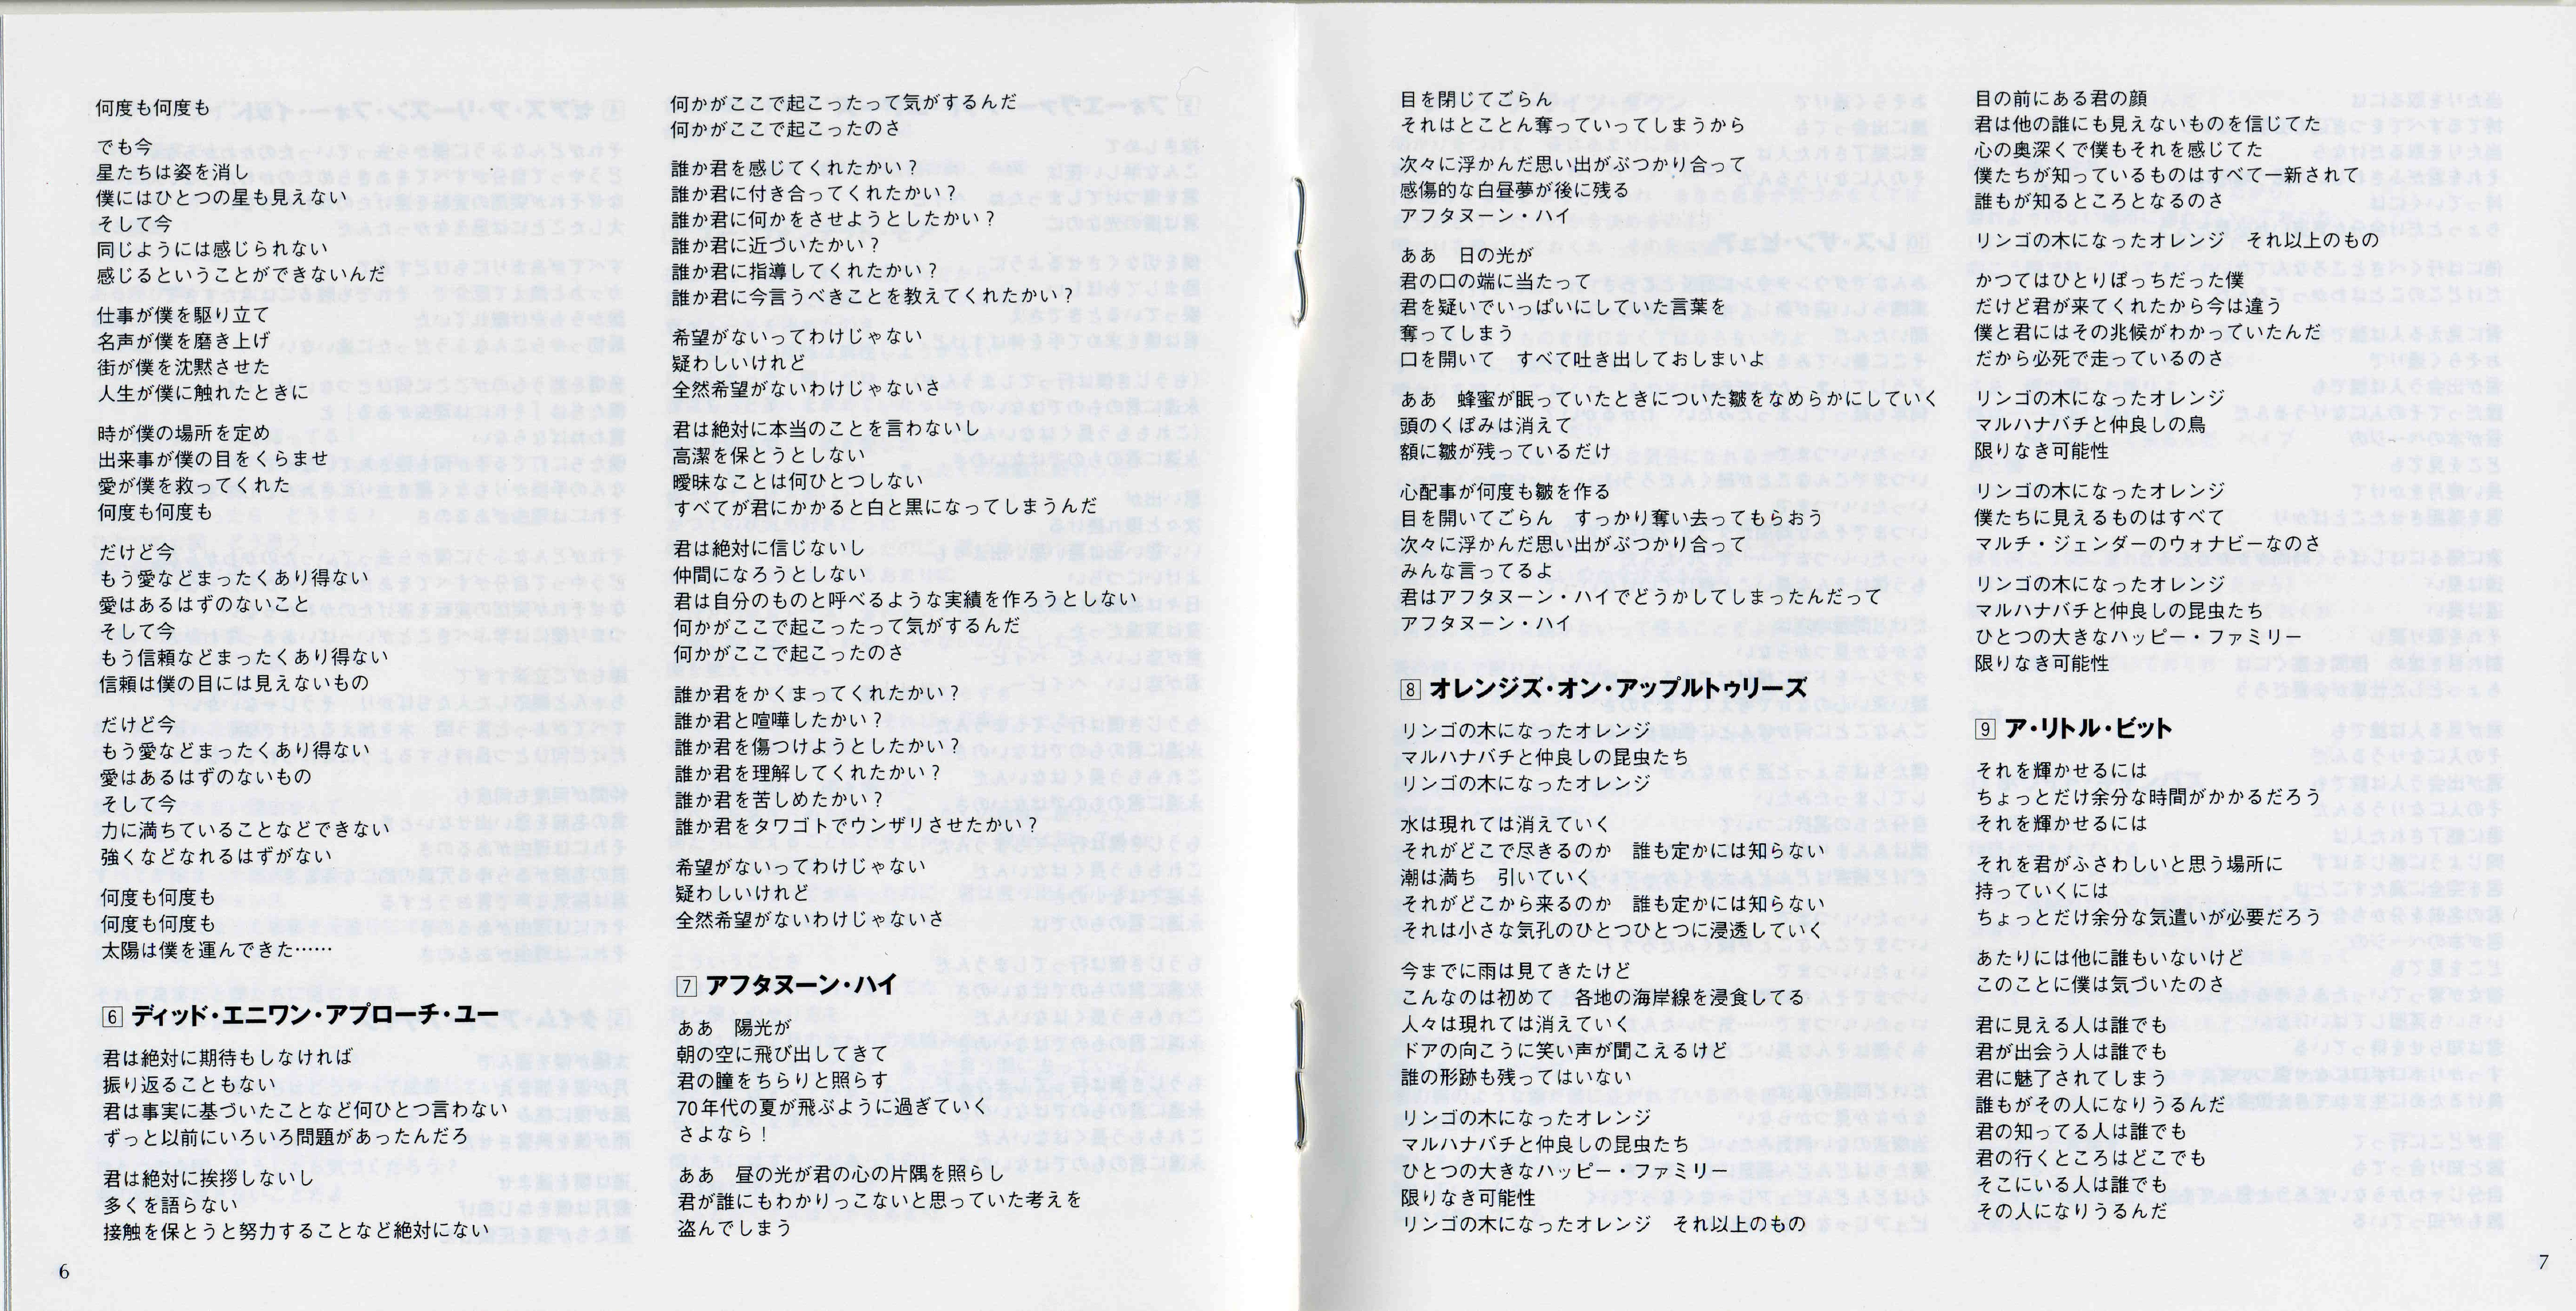 何度も何度も
でも今
星たちは姿を消し
僕にはひとつの星も見えない
そして今
同じようには感じられない
感じるということができないんだ
仕事が僕を駆り立て
名声が僕を磨き上げ
街が僕を沈黙させた
人生が僕に触れたときに
時が僕の場所を定め
出来事が僕の目をくらませ
愛が僕を救ってくれた
何度も何度も
だけど今
もう愛などまったくあり得ない
愛はあるはずのないこと
そして今
もう信頼などまったくあり得ない
信頼は僕の目には見えないもの
だけど今
もう愛などまったくあり得ない
愛はあるはずのないもの
そして今
力に満ちていることなどできない
強くなどなれるはずがない
何度も何度も
何度も何度も
太陽は僕を運んできた……
6 ディッド・エニワン・アプローチ・ユー
君は絶対に期待もしなければ
振り返ることもない
君は事実に基づいたことなど何ひとつ言わない
ずっと以前にいろいろ問題があったんだろ
君は絶対に挨拶しないし
多くを語らない
接触を保とうと努力することなど絶対にない
6
何かがここで起こったって気がするんだ
何かがここで起こったのさ
誰か君を感じてくれたかい?
誰か君に付き合ってくれたかい?
誰か君に何かをさせようとしたかい?
誰か君に近づいたかい?
誰か君に指導してくれたかい?
誰か君に今言うべきことを教えてくれたかい?
希望がないってわけじゃない
疑わしいけれど
全然希望がないわけじゃないさ
君は絶対に本当のことを言わないし
高潔を保とうとしない
曖昧なことは何ひとつしない
すべてが君にかかると白と黒になってしまうんだ
君は絶対に信じないし
仲間になろうとしない
君は自分のものと呼べるような実績を作ろうとしない
何かがここで起こったって気がするんだ
何かがここで起こったのさ
誰か君をかくまってくれたかい?
誰か君と喧嘩したかい?
誰か君を傷つけようとしたかい?
誰か君を理解してくれたかい?
誰か君を苦しめたかい?
誰か君をタワゴトでウンザリさせたかい?
希望がないってわけじゃない
疑わしいけれど
全然希望がないわけじゃないさ
7 アフタヌーン・ハイ
ああ　陽光が
朝の空に飛び出してきて
君の瞳をちらりと照らす
70年代の夏が飛ぶように過ぎていく
さよなら!
ああ　昼の光が君の心の片隅を照らし
君が誰にもわかりっこないと思っていた考えを
盗んでしまう
目を閉じてごらん
それはとことん奪っていってしまうから
次々に浮かんだ思い出がぶつかり合って
感傷的な白昼夢が後に残る
アフタヌーン・ハイ
ああ　日の光が
君の口の端に当たって
君を疑いでいっぱいにしていた言葉を
奪ってしまう
口を開いて　すべて吐き出しておしまいよ
ああ　蜂蜜が眠っていたときについた皺をなめらかにしていく
頭のくぼみは消えて
額に皺が残っているだけ
心配事が何度も皺を作る
目を開いてごらん　すっかり奪い去ってもらおう
次々に浮かんだ思い出がぶつかり合って
みんな言ってるよ
君はアフタヌーン・ハイでどうかしてしまったんだって
アフタヌーン・ハイ
8 オレンジズ・オン・アップルトゥリーズ
リンゴの木になったオレンジ
マルハナバチと仲良しの昆虫たち
リンゴの木になったオレンジ
水は現れては消えていく
それがどこで尽きるのか　誰も定かには知らない
潮は満ち　引いていく
それがどこから来るのか　誰も定かには知らない
それは小さな気孔のひとつひとつに浸透していく
今までに雨は見てきたけど
こんなのは初めて　各地の海岸線を浸食してる
人々は現れては消えていく
ドアの向こうに笑い声が聞こえるけど
誰の形跡も残ってはいない
リンゴの木になったオレンジ
マルハナバチと仲良しの昆虫たち
ひとつの大きなハッピー・ファミリー
限りなき可能性
リンゴの木になったオレンジ　それ以上のもの
目の前にある君の顔
君は他の誰にも見えないものを信じてた
心の奥深くで僕もそれを感じてた
僕たちが知っているものはすべて一新されて
誰もが知るところとなるのさ
リンゴの木になったオレンジ　それ以上のもの
かつてはひとりぼっちだった僕
だけど君が来てくれたから今は違う
僕と君にはその兆候がわかっていたんだ
だから必死で走っているのさ
リンゴの木になったオレンジ
マルハナバチと仲良しの鳥
限りなき可能性
リンゴの木になったオレンジ
僕たちに見えるものはすべて
マルチ・ジェンダーのウォナビーなのさ
リンゴの木になったオレンジ
マルハナバチと仲良しの昆虫たち
ひとつの大きなハッピー・ファミリー
限りなき可能性
9 ア・リトル・ビット
それを輝かせるには
ちょっとだけ余分な時間がかかるだろう
それを輝かせるには
それを君がふさわしいと思う場所に
持っていくには
ちょっとだけ余分な気遣いが必要だろう
あたりには他に誰もいないけど
このことに僕は気づいたのさ
君に見える人は誰でも
君が出会う人は誰でも
君に魅了されてしまう
誰もがその人になりうるんだ
君の知ってる人は誰でも
君の行くところはどこでも
そこにいる人は誰でも
その人になりうるんだ
7